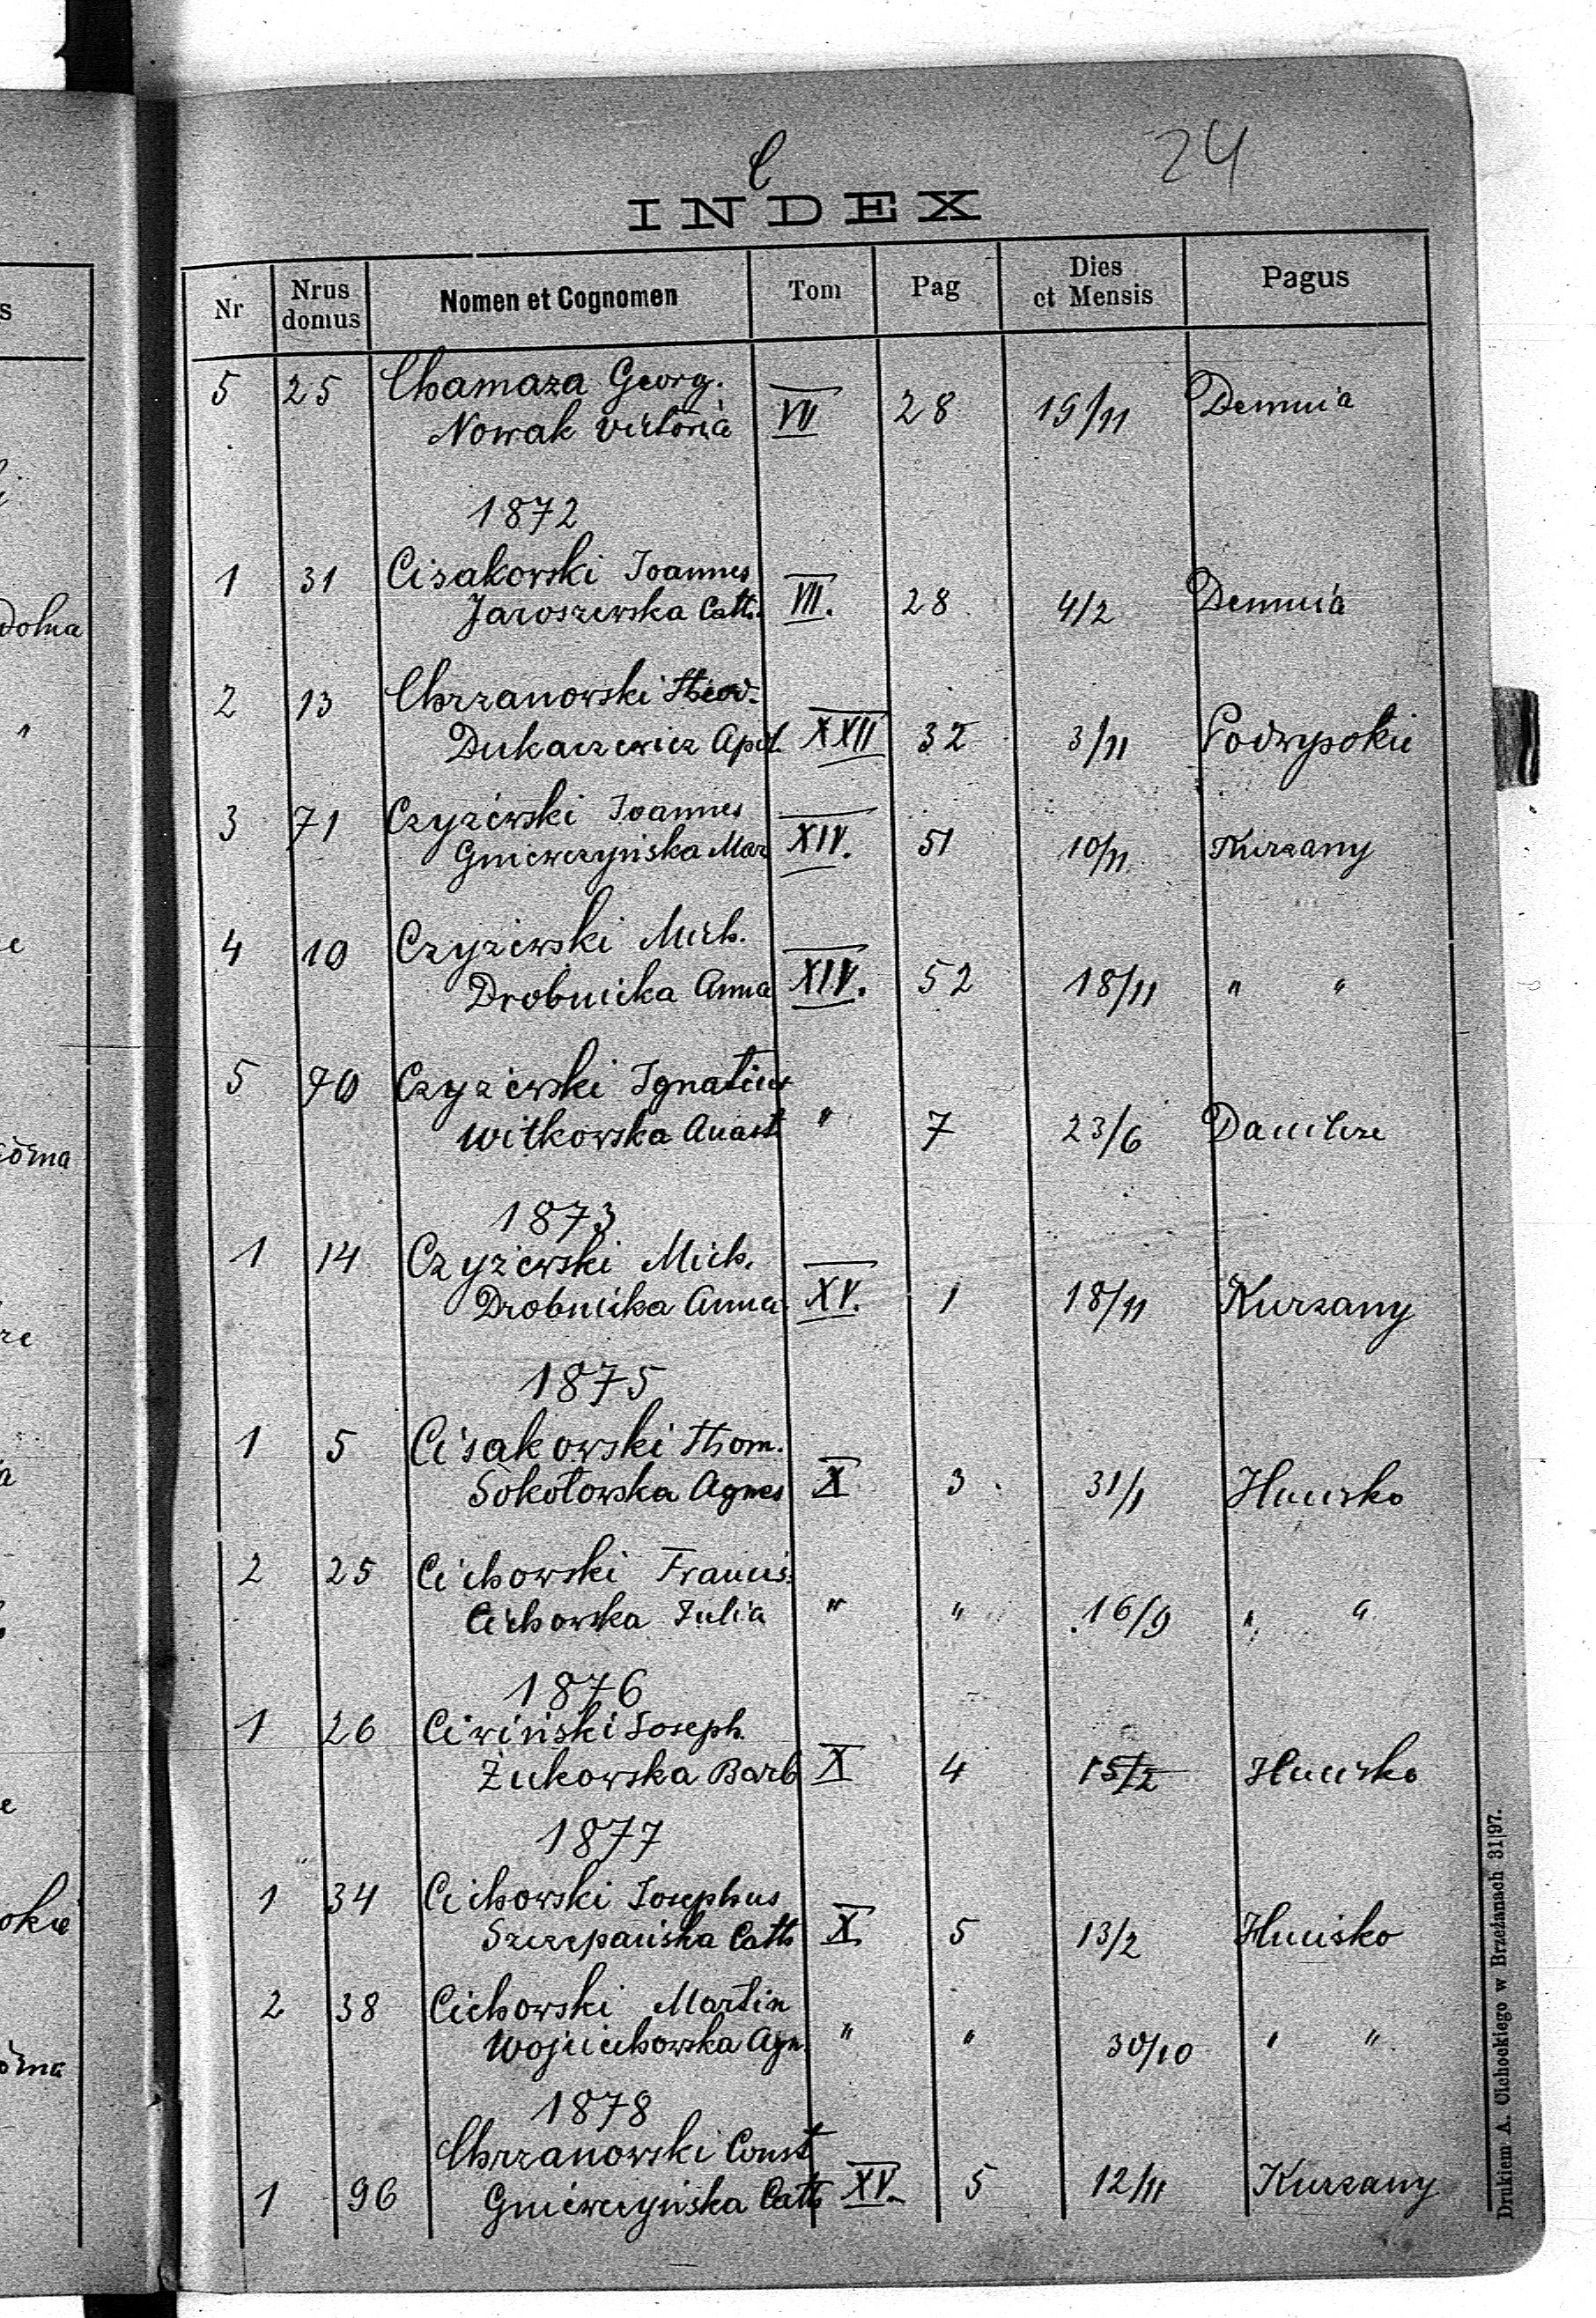 C
24
INDEX
Nr Nrus domus Nomen et Cognomen Tom Pag Dies et Mensis Pagus
5 25 Chamaza Georg.
Nowak Victoria VII 28 19/11 Demnia
1872
1 31 Cisakowski Joannes
Jaroszewska Cath. VII. 28 4/2 Demnia
2 13 Chrzanowski Theod.
Dukaczewicz Apol. XXII 32 3/11 Podwysokie
3 71 Czyżewski Joannes
Gniewczyńska Mar XIV. 51 10/11 Kurzany
4 10 Czyżewski Mich.
Drobnicka Anna XIV. 52 18/11 " "
5 70 Czyżewski Ignatius
Witkowska Anast. " 7 23/6 Danilcze
1873
1 14 Czyżewski Mich.
Drobnicka Anna XV. 1 18/11 Kurzany
1875
1 5 Cisakowski Thom.
Sokołowska Agnes X 3 31/1 Hucisko
2 25 Cichowski Francis.
Cichowska Julia " " 16/9 " "
1876
1 26 Ciwiński Joseph.
Żukowska Barb X 4 15/2 Hucisko
1877
1 34 Cichowski Josephus
Szczepańska Cath X 5 13/2 Hucisko
2 38 Cichowski Martin
Wojciechowska Agn. " " 30/10 " "
1878
Chrzanowski Const
1 96 Gniewczyńska Cath XV. 5 12/11 Kurzany
Drukiem A. Cichockiego w Brzeżanach 31|97.
s
dolna
górna
okie
órna